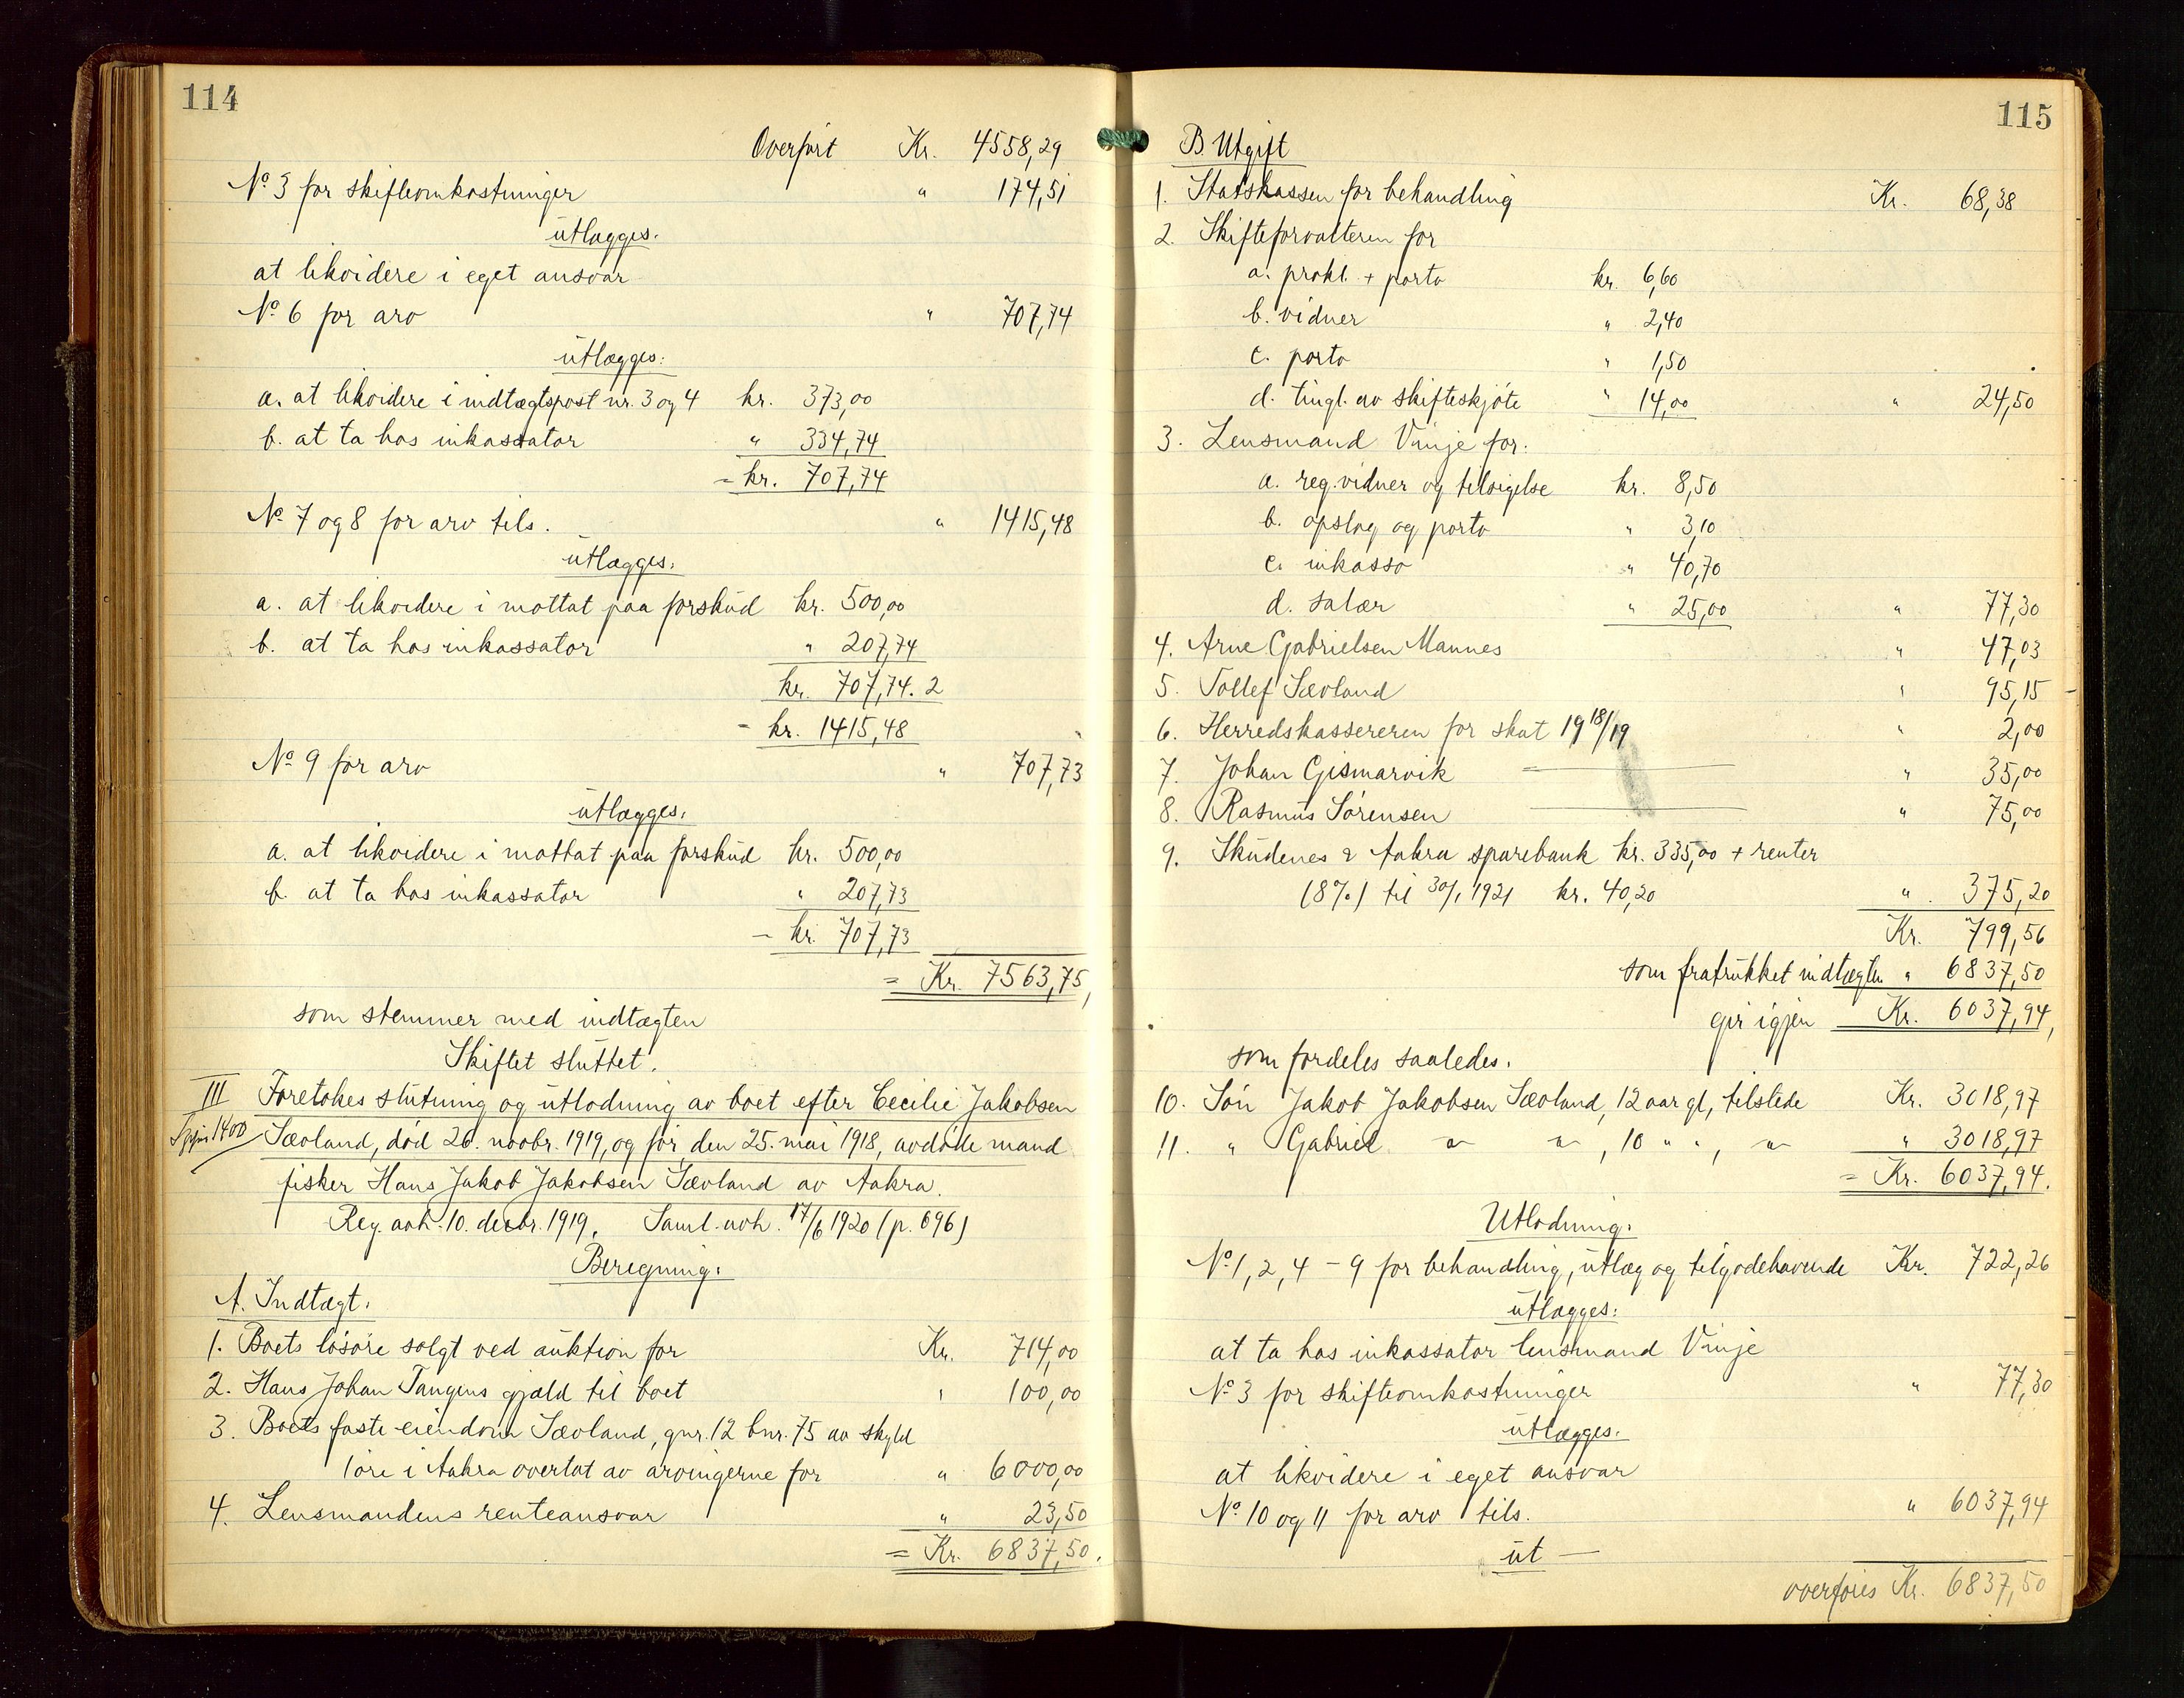 114
Overført Kr. 4558,29
No 3 for skifteomkostninger " 174,51
utlægges.
at likvidere i eget ansvar
No 6 for arv " 707,74
utlægges:
a. at likvidere i indtægtspost nr. 3 og 4 kr. 373,00
b. at ta hos inkassator " 334,74
= kr. 707,74
No 7 og 8 for arv tils. " 1415,48
utlægges:
a. at likvidere i mottat paa forskud kr. 500,00
b. at ta hos inkassator " 207,74
kr. 707,74. 2
= kr. 1415,48
No 9 for arv " 707,73
utlægges:
a. at likvidere i mottat paa forskud kr. 500,00
b. at ta hos inkassator " 207,73
= kr. 707,73
= Kr. 7563,75,
som stemmer med indtægten
Skiftet sluttet.
III Foretokes slutning og utlodning av boet efter Cecilie Jakobsen
1400 Sævland, død 26. novbr. 1919, og før, den 25. mai 1918, avdøde mand
fisker Hans Jakob Jakobsen Sævland av Aakra.
Reg. avh. 10. decbr. 1919. Saml. avh. 17/6 1920 (p. 696)
Beregning:
A. Indtægt:
1. Boets løsøre solgt ved auktion for Kr. 714,00
2. Hans Johan Tangens gjæld til boet " 100,00
3. Boets faste eiendom Sævland, gnr. 12 bnr. 75 av skyld
1 øre i Aakra overtat av arvingerne for " 6000,00
4. Lensmandens renteansvar " 23,50
= Kr. 6837,50.
115
B. Utgift
1. Statskassen for behandling Kr. 68,38
2. Skifteforvalteren for
a. prokl. + porto kr. 6,60
b. vidner " 2,40
c. porto " 1,50
d. tingl. av skifteskjøte " 14,00 " 24,50
3. Lensmand Vinje for:
a. reg. vidner og tilsigelse kr. 8,50
b. opslag og porto " 3,10
c. inkasso " 40,70
d. salær " 25,00 " 77,30
4. Arne Gabrielsen Mannes " 47,03
5. Tollef Sævland " 95,15
6. Herredskassereren for skat 1918/19 " 2,00
7. Johan Gismarvik " 35,00
8. Rasmus Sørensen " 75,00
9. Skudenes & Aakra sparebank kr. 335,00 + renter
(8%) til 30/1 1921 kr. 40,20 " 375,20
Kr. 799,56
som fratrukket indtægten " 6837,50
gir igjen Kr. 6037,94,
som fordeles saaledes:
10. Søn Jakob Jakobsen Sævland, 12 aar gl, tilstede Kr. 3018,97
11. " Gabriel " " , 10 " " , " " 3018,97
= Kr. 6037,94.
Utlodning:
No 1, 2, 4 - 9 for behandling, utlæg og tilgodehavende Kr. 722,26
utlægges:
at ta hos inkassator lensmand Vinje
No 3 for skifteomkostninger " 77,30
utlægges.
at likvidere i eget ansvar
No 10 og 11 for arv tils. " 6037,94
ut —
overføres Kr. 6837,50